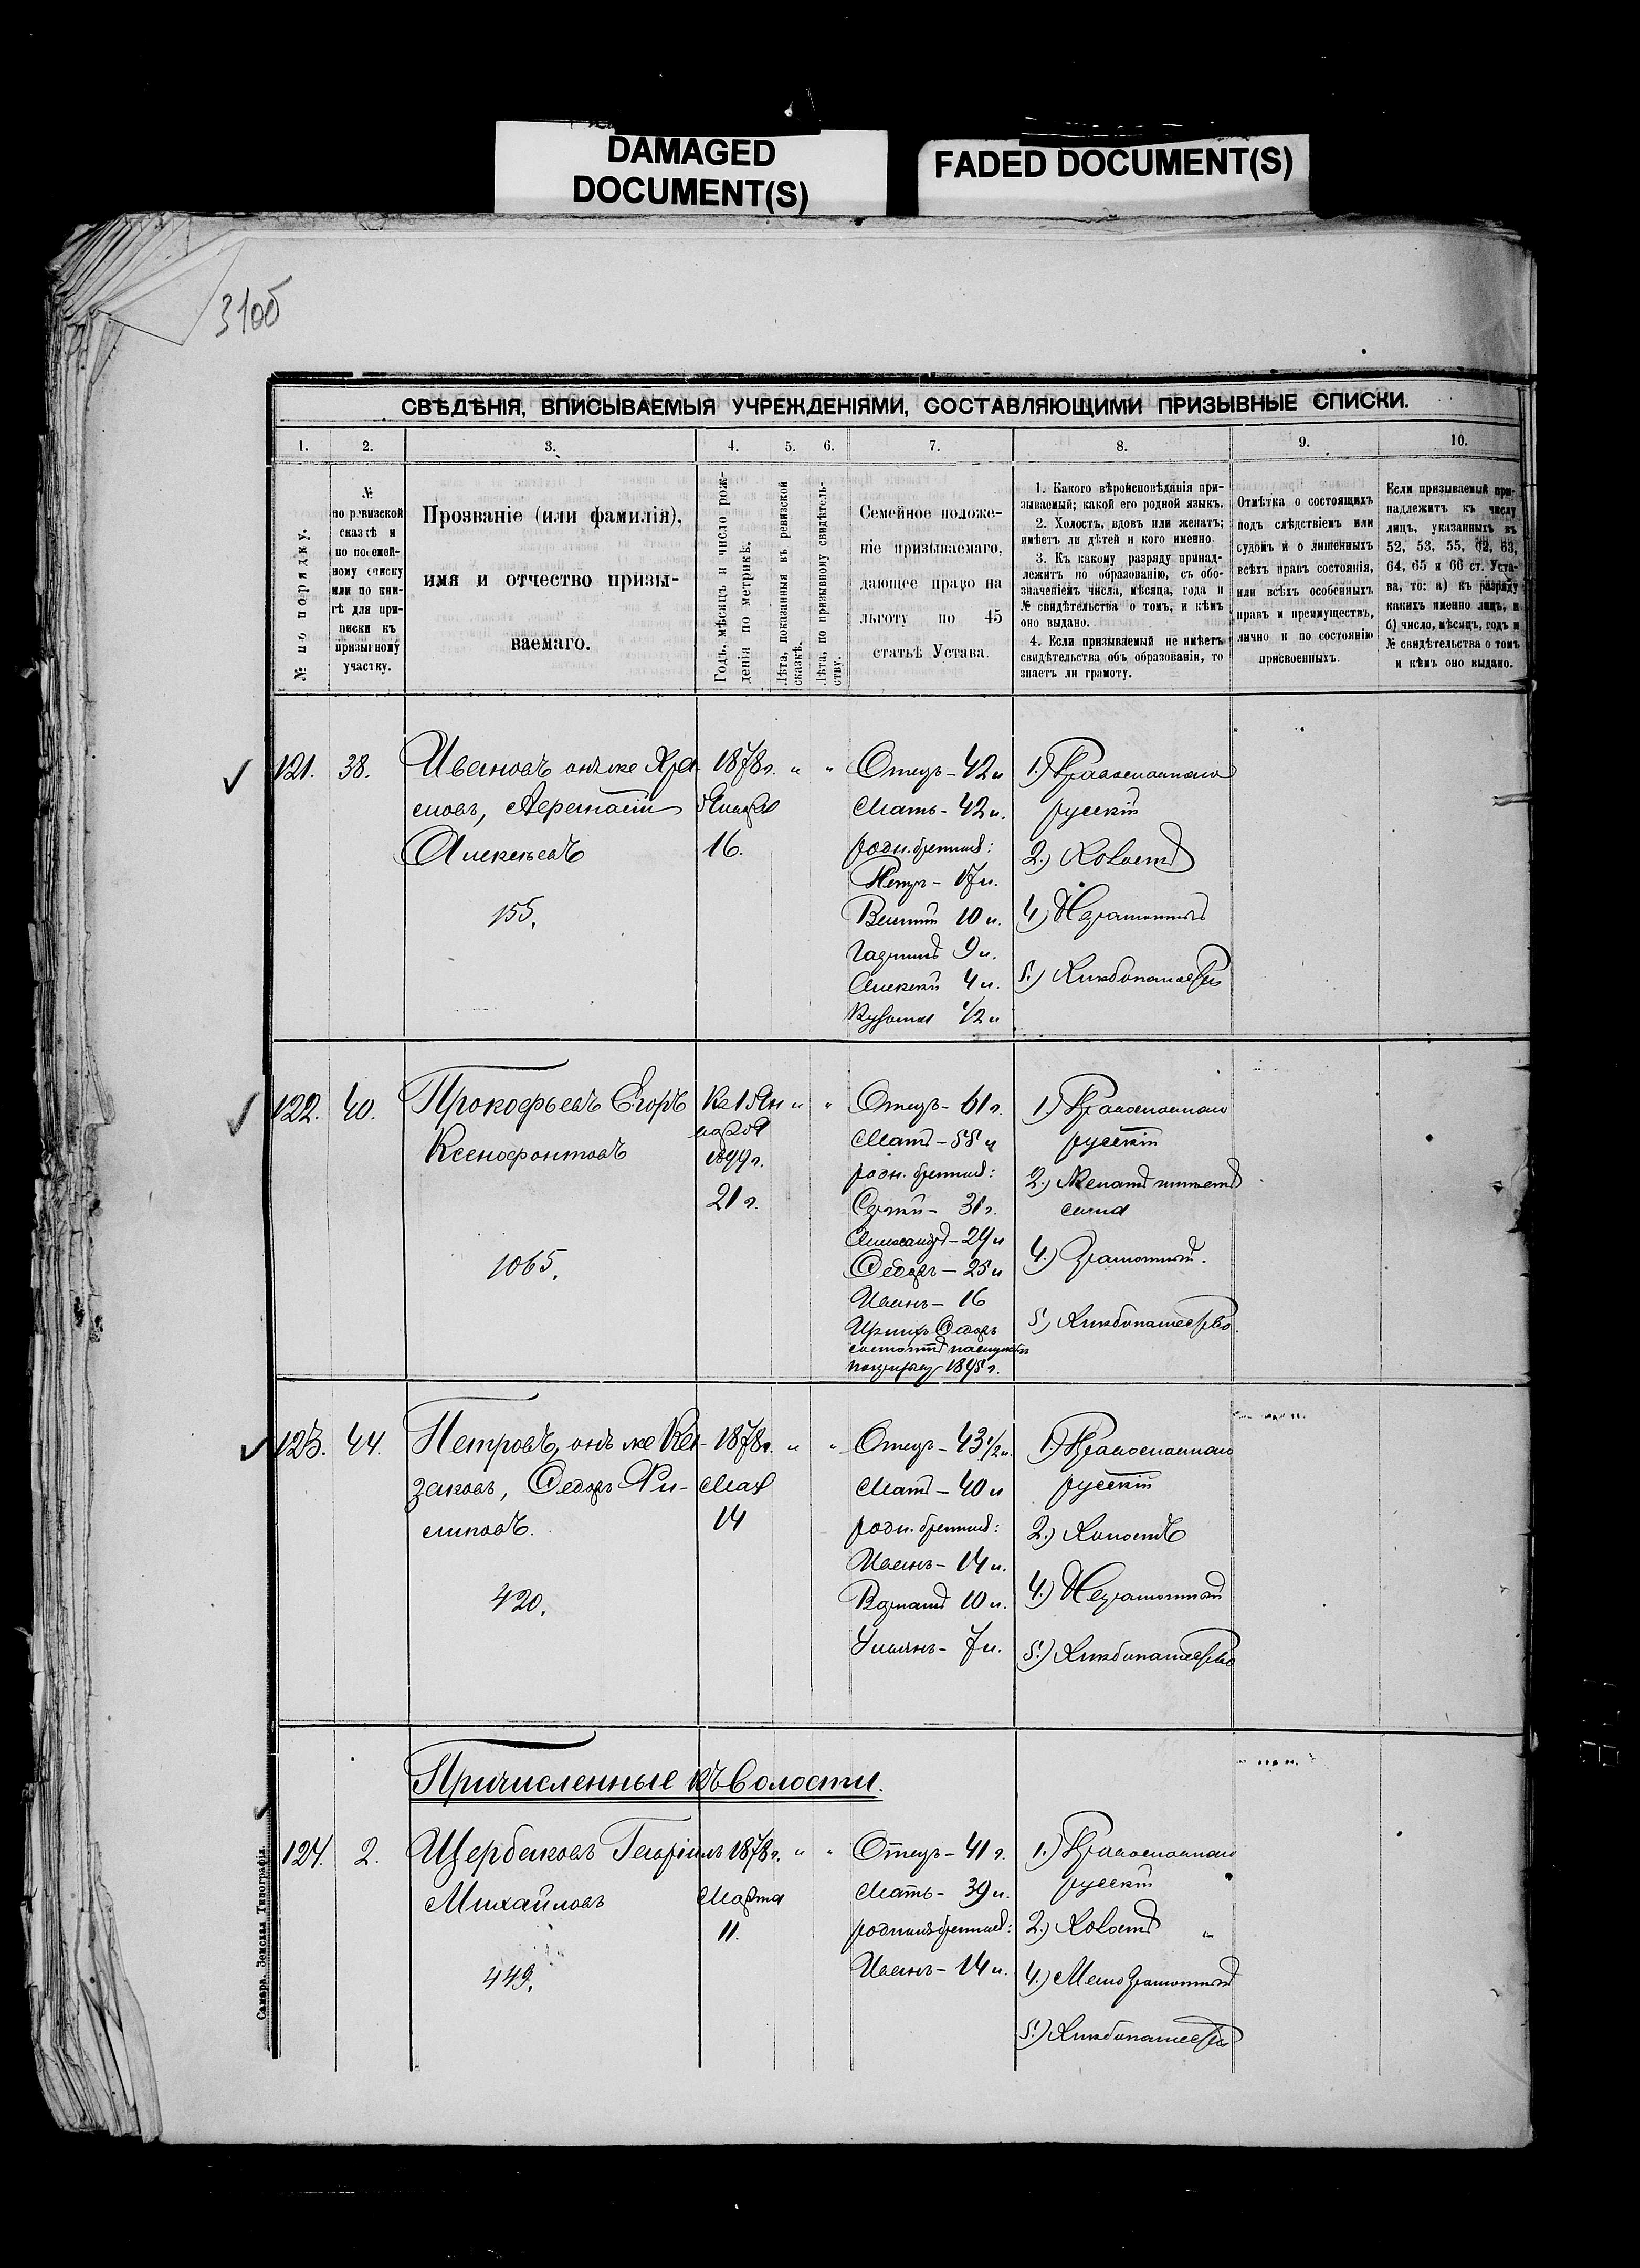 DAMAGED
DOCUMENT(S)
FADED DOCUMENT(S)
310б
СВѢДѢНІЯ, ВПИСЫВАЕМЫЯ УЧРЕЖДЕНІЯМИ, СОСТАВЛЯЮЩИМИ ПРИЗЫВНЫЕ СПИСКИ.
1. 2. 3. 4. 5. 6. 7. 8. 9. 10.
№ по порядку.
№
по ревизской
сказкѣ и
по посемей-
ному списку
или по кни-
гѣ для при-
писки къ
призывному
участку.
Прозваніе (или фамилія),
имя и отчество призы-
ваемаго.
Годъ, мѣсяцъ и число рож-
денія по метрикѣ.
Лѣта, показанныя въ ревизской
сказкѣ.
Лѣта, по призывному свидѣтель-
ству.
Семейное положе-
ніе призываемаго,
дающее право на
льготу по 45
статьѣ Устава.
1. Какого вѣроисповѣданія при-
зываемый; какой его родной языкъ.
2. Холостъ, вдовъ или женатъ;
имѣетъ ли дѣтей и кого именно.
3. Къ какому разряду принад-
лежитъ по образованію, съ обо-
значеніемъ числа, мѣсяца, года и
№ свидѣтельства о томъ, и кѣмъ
оно выдано.
4. Если призываемый не имѣетъ
свидѣтельства объ образованіи, то
знаетъ ли грамоту.
Отмѣтка о состоящихъ
подъ слѣдствіемъ или
судомъ и о лишенныхъ
всѣхъ правъ состоянія,
или всѣхъ особенныхъ
правъ и преимуществъ,
лично и по состоянію
присвоенныхъ.
Если призываемый при-
надлежитъ къ числу
лицъ, указанныхъ въ
52, 53, 55, 62, 63,
64, 65 и 66 ст. Уста-
ва, то: а) къ разряду
какихъ именно лицъ, и
б) число, мѣсяцъ, годъ и
№ свидѣтельства о томъ
и кѣмъ оно выдано.
121. 38. Ивановъ онъ же Хра- 1878 г. " "
смовъ, Аѳанасій Января
Алексѣевъ 16.
155.
Отецъ - 42 л
Мать - 42 л.
родн. братья:
Петръ - 17 л.
Василій 10 л.
9 л.
Алексѣй 4 л.
Кузьма 1/2 л
1.) Православнаго
русскій
2.) Холостъ
4.) Неграмотный
5.) Хлѣбопашество
122. 40. Прокофьевъ Егоръ Къ 1 Ян " "
Ксенофонтовъ варя
1899 г.
21 г.
1065.
Отецъ - 61 г.
Мать - 55 л
родн. братья:
Сергѣй - 31 г.
Александръ - 29 л
Ѳедоръ - 25 л
Иванъ - 16
Ѳедоръ
состоитъ на службѣ
1895 г.
1.) Православнаго
русскій
2.) Женатъ имѣетъ
сына
4.) Грамотный.
5.) Хлѣбопашество.
123. 44. Петровъ, онъ же Ка- 1878 г. " "
заковъ, Ѳедоръ Фи- Мая
липповъ. 14
420.
Отецъ - 43 1/2 л.
Мать - 40 л
родн. братья:
Иванъ - 14 л.
10 л.
Ульянъ - 7 л.
1.) Православнаго
русскій
2.) Холостъ
4.) Неграмотный
5.) Хлѣбопашество
Причисленные къ волости.
124. 2. Щербаковъ Гавріилъ 1878 г. " "
Михайловъ Марта
11.
449.
Отецъ - 41 г.
Мать - 39 л.
родные братья:
Иванъ - 14 л.
1.) Православнаго
русскій
2.) Холостъ "
4.) Малограмотный
5.) Хлѣбопашество
Самара. Земская Типографія.